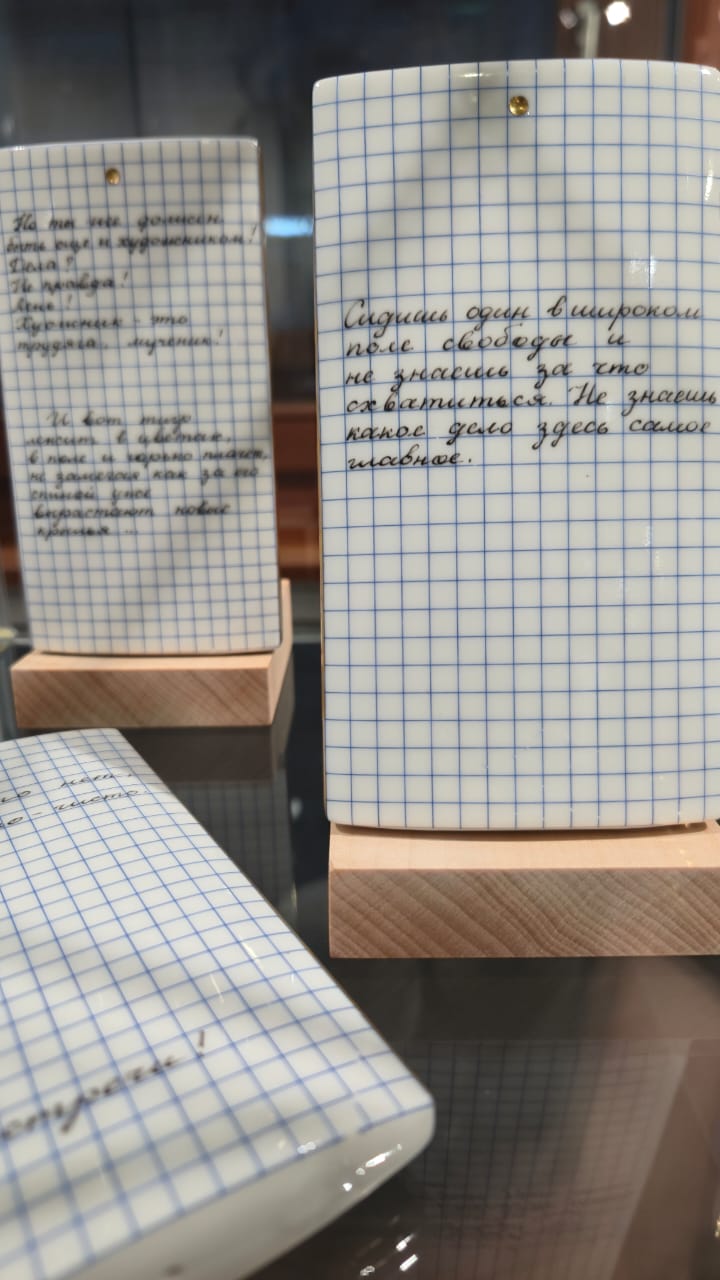 Но ты же должен
быть еще и художником!
Дела?
Не правда!
Лень!
Художник - это
трудяга, мученик!
И вот тихо
лежит в цветах,
в поле и горько плачет,
не замечая как за его
спиной уже
вырастают новые
крылья ...
Сидишь один в широком
поле свободы и
не знаешь за что
схватиться. Не знаешь
какое дело здесь самое
главное.